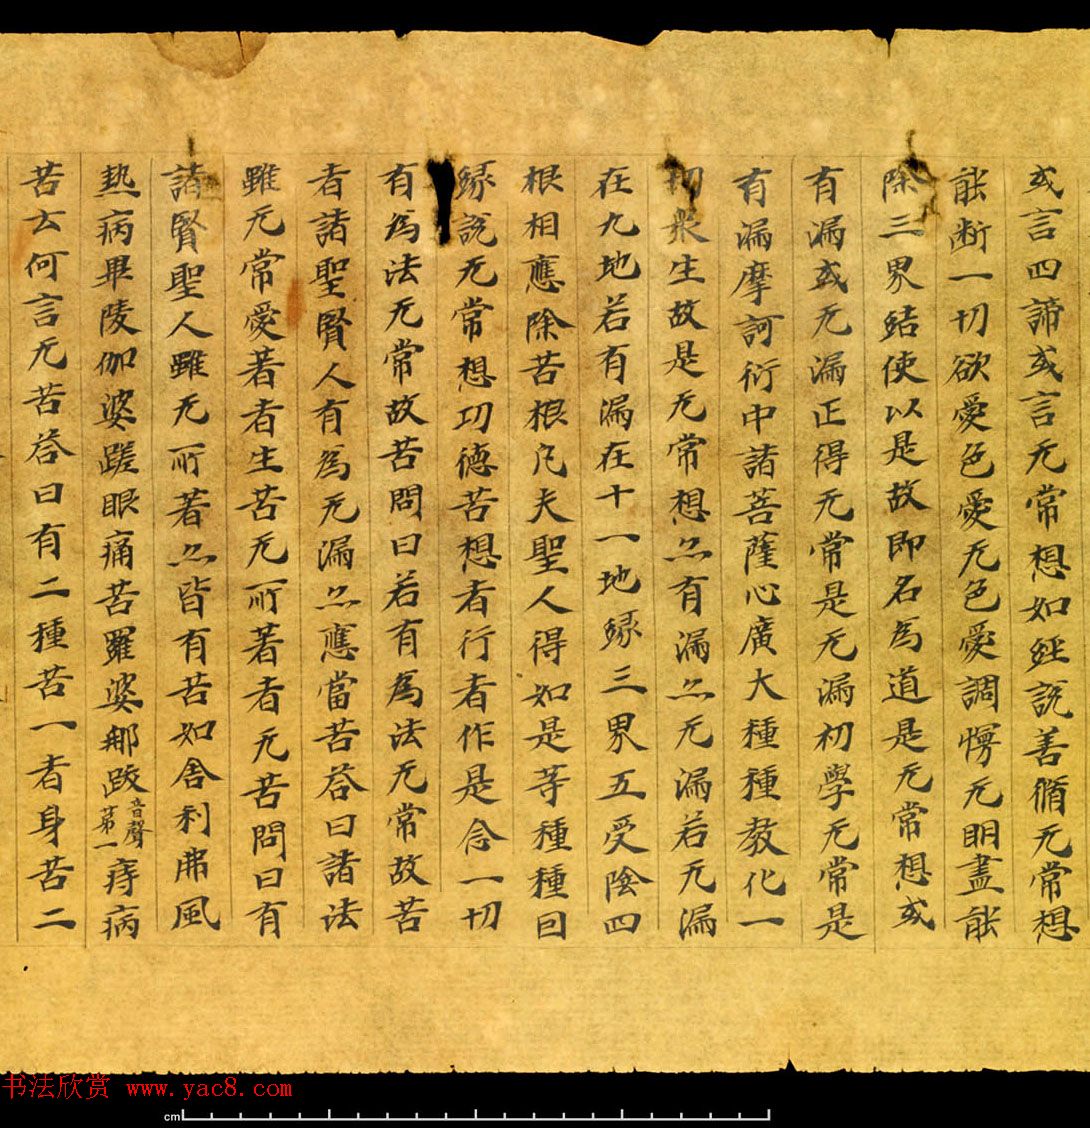 或言四諦或言无常想如經說善脩无常想
能斷一切欲愛色愛无色愛調慢无明盡能
除三界結使以是故即名為道是无常想或
有漏或无漏正得无常是无漏初學无常是
有漏摩訶衍中諸菩薩心廣大種種教化一
切衆生故是无常想亦有漏亦无漏若无漏
在九地若有漏在十一地緣三界五受陰四
根相應除苦根凢夫聖人得如是等種種回
緣說无常想功德苦想者行者作是念一切
有為法无常故苦問曰若有為法无常故苦
者諸聖賢人有為无漏亦應當苦荅曰諸法
雖无常愛著者生苦无所著者无苦問曰有
諸賢聖人雖无所著亦皆有苦如舍利弗風
熱病畢陵伽婆蹉眼痛苦羅婆那跋音聲第一痔病
苦云何言无苦荅曰有二種苦一者身苦二
书法欣赏 www.yac8.com
cm